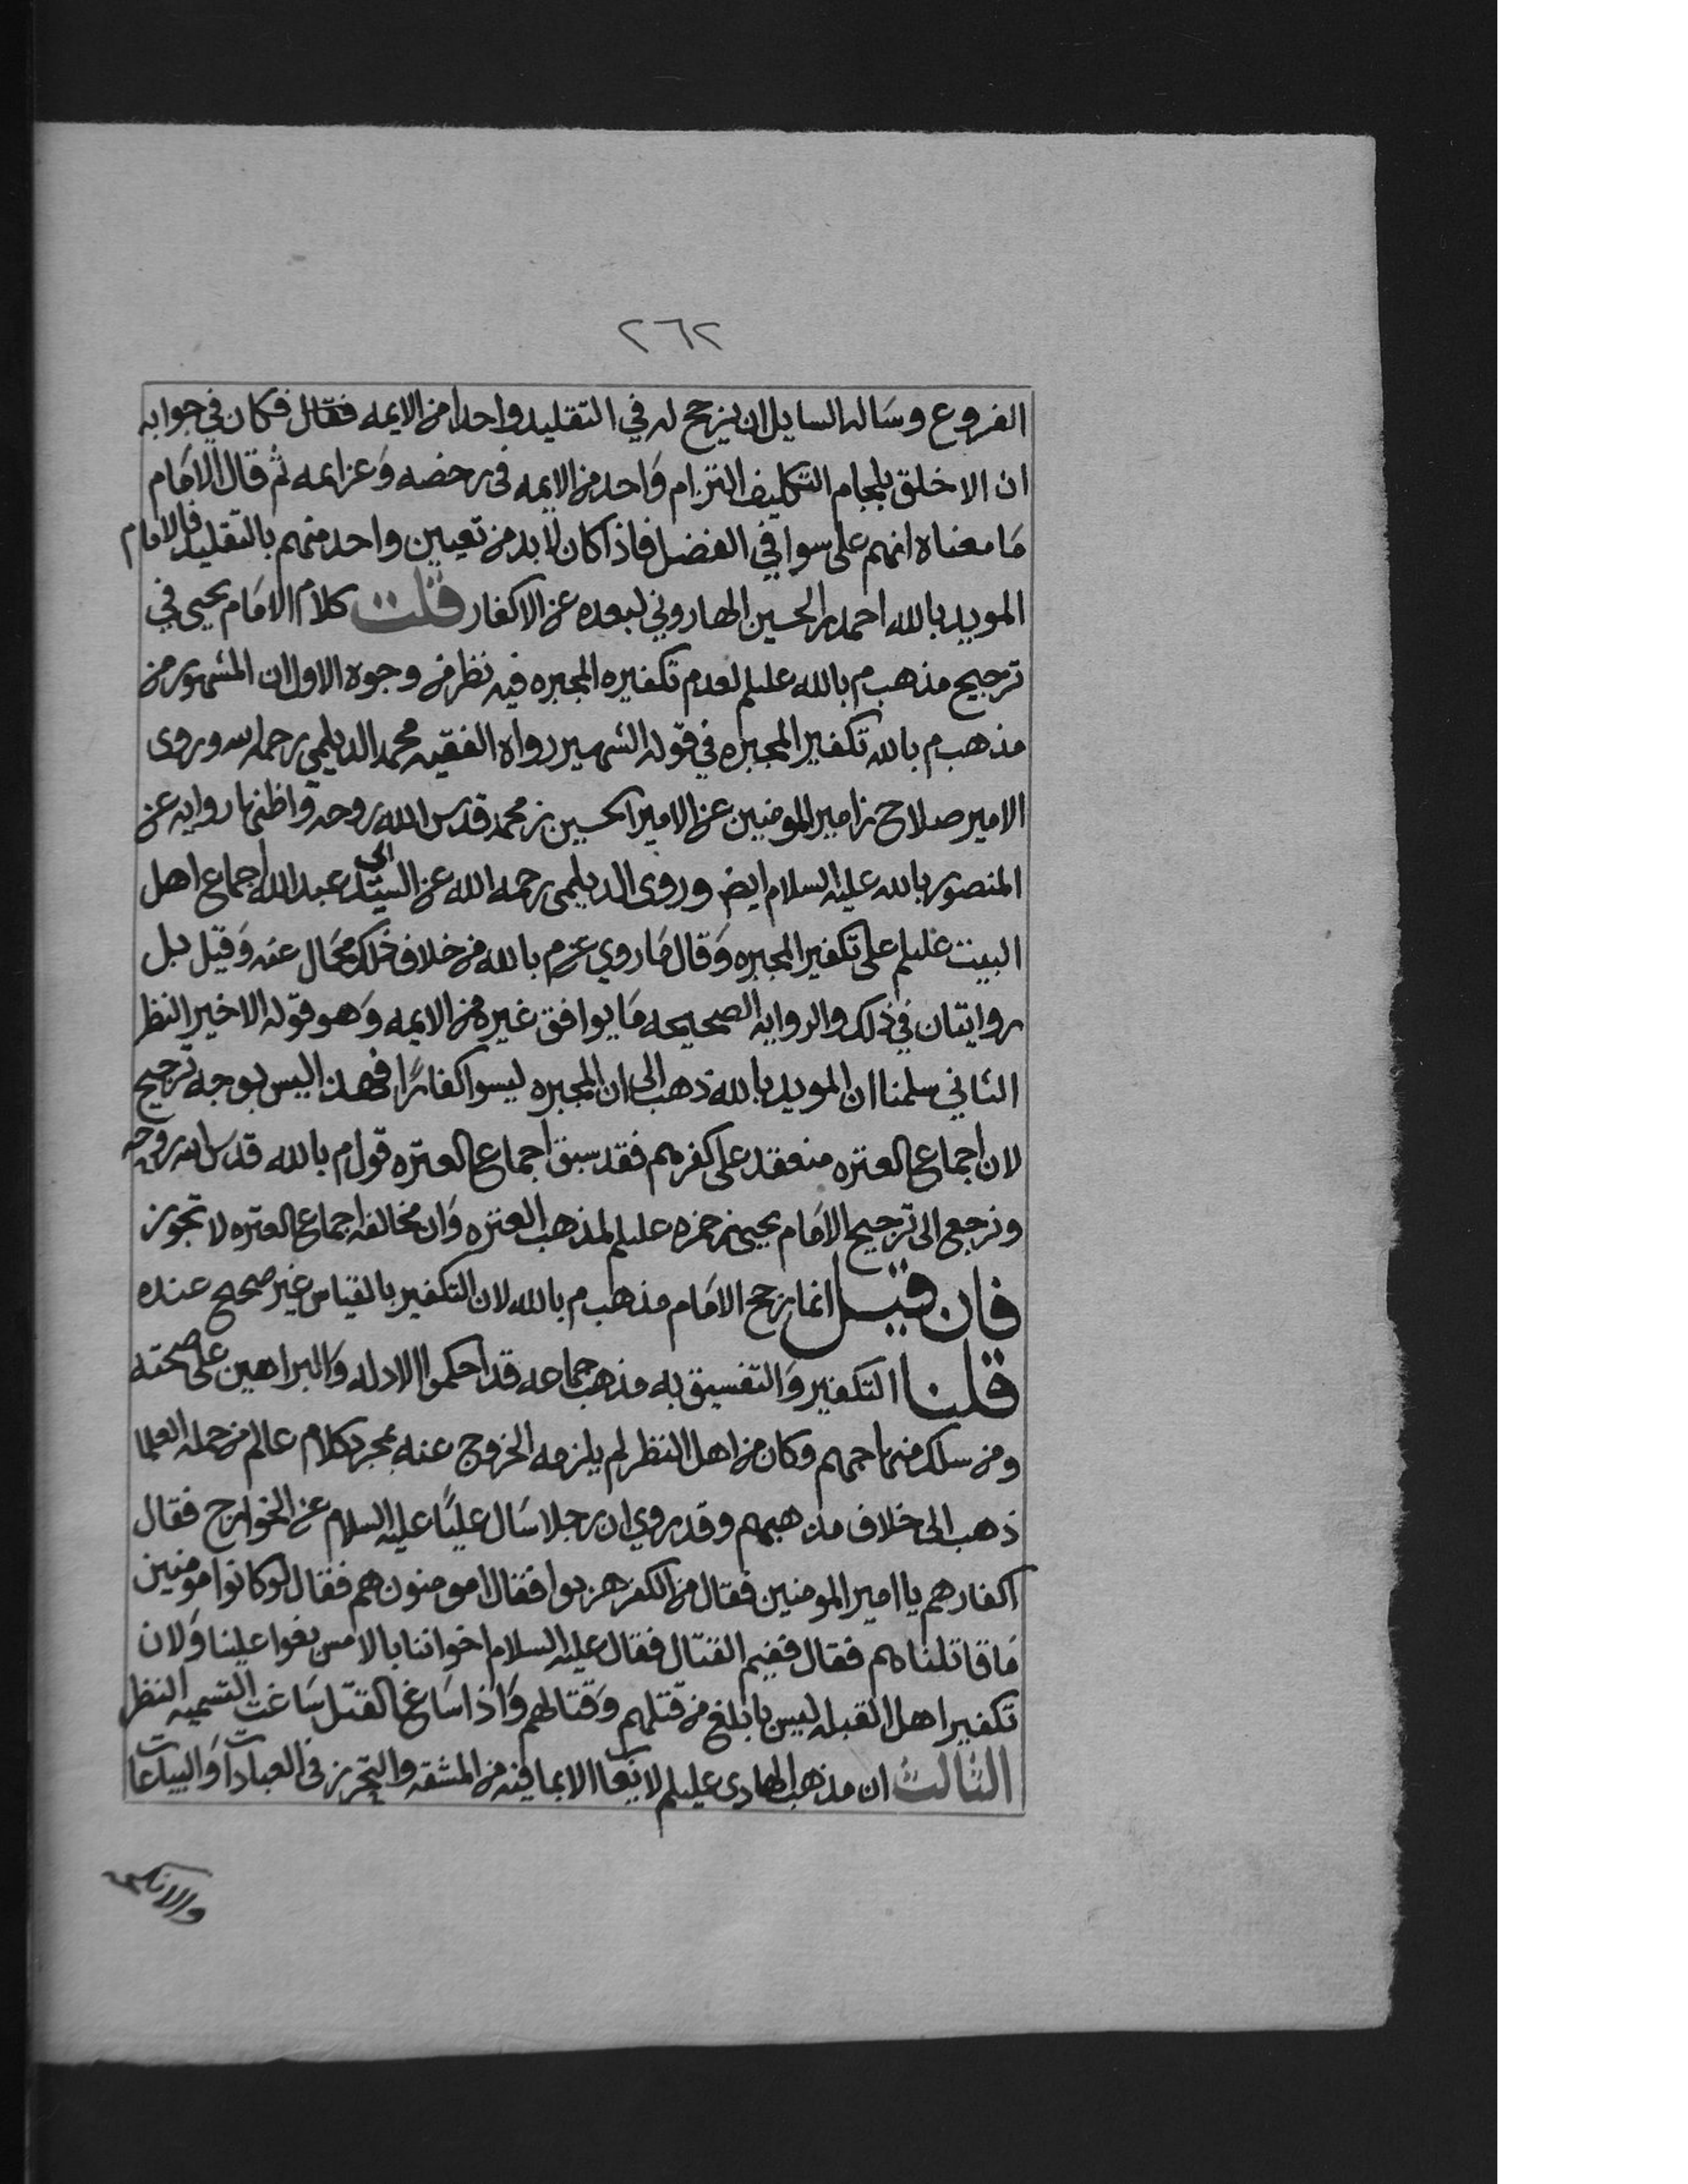 ٢٦٢
الفروع وساله السايل ان يرجح له في التقليد واحدا من الايمه فقال فكان في جوابه
ان الاخلق بلجام التكليف التزام واحد من الايمه في رخصه وعزايمه ثم قال الامام
ما معناه انهم على سوا في الفضل فاذا كان لا بد من تعيين واحد منهم بالتقليد فالامام
المويد بالله احمد بن الحسين الهاروني لبعده عن الاكفار قلت كلام الامام يحيى في
ترجيح مذهب م بالله عليلم لعدم تكفيره المجبره فيه نظر من وجوه الاول ان المشهور من
مذهب م بالله تكفير المجبره في قوله الشهير رواه الفقيه محمد الديلمي رحمه الله وروى
الامير صلاح بن امير المومنين عن الامير الحسين بن محمد قدس الله روحه واظنها روايه عن
المنصور بالله عليه السلام ايض وروى الديلمي رحمه الله عن السيد ابي عبد الله اجماع اهل
البيت عليلم على تكفير المجبره وقال ما روي عن م بالله من خلاف ذلك محال عنه وقيل بل
روايتان في ذلك والروايه الصحيحه ما يوافق غيره من الايمه وهو قوله الاخير النظر
الثاني سلمنا ان المويد بالله ذهب الى ان المجبره ليسوا كفارًا فهذا ليس بوجه ترجيح
لان اجماع العتره منعقد على كفرهم فقد سبق اجماع العتره قول م بالله قدس الله روحه
ونرجع الى ترجيح الامام يحيى بن حمزه عليلم لمذهب العتره وان مخالفه اجماع العتره لا تجوز
فان قيل انما رجح الامام مذهب م بالله لان التكفير بالقياس غير صحيح عنده
قلنا التكفير والتفسيق به مذهب جماعه قد احكموا الادله والبراهين على صحته
ومن سلك منهاجهم وكان من اهل النظر لم يلزمه الخروج عنه بمجرد كلام عالم من جمله العلما
ذهب الى خلاف مذهبهم وقد روي ان رجلا سال عليًا عليه السلام عن الخوارج فقال
اكفار هم يا امير المومنين فقال من الكفر هربوا فقال امومنون هم فقال لو كانوا مومنين
ما قاتلناهم فقال ففيم القتال فقال عليه السلام اخواننا بالامس بغوا علينا ولان
تكفير اهل القبله ليس بابلغ من قتلهم وقتالهم واذا ساغ القتل ساغت التسميه النظر
الثالث ان مذهب الهادي عليلم لا الا بما فيه من المشقه والتحرز في العبادات والبياعات